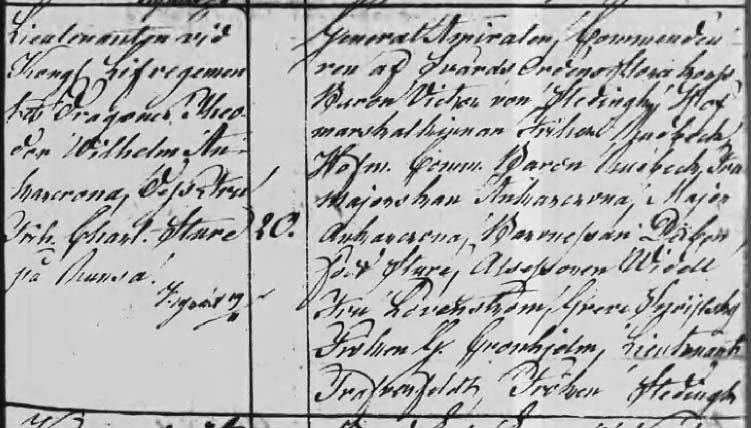 Lieutenanten vid
Kongl. Lifregemen
tets Dragoner Theo-
dor Wilhelm An-
karcrona, Dess Fru
Frih. Charl. Sture
på Runsa.
20.
General Amiralen, Commendeu
ren af Svärds Ordens Stora kors
Baron Victor von Stedingk, Hof
marskalkinnan Friherr. Rudbeck,
Hofm. Comm. Baron Rudbeck, Fru
majorskan Ankarcrona, Major
Ankarcrona, Baronessan Düben
född Sture, Assessoren Widell
Fru Lovenström, Greve
Fröken G. Cronhjelm, Lieutenant
Trafvenfeldt, Fröken Stedingk